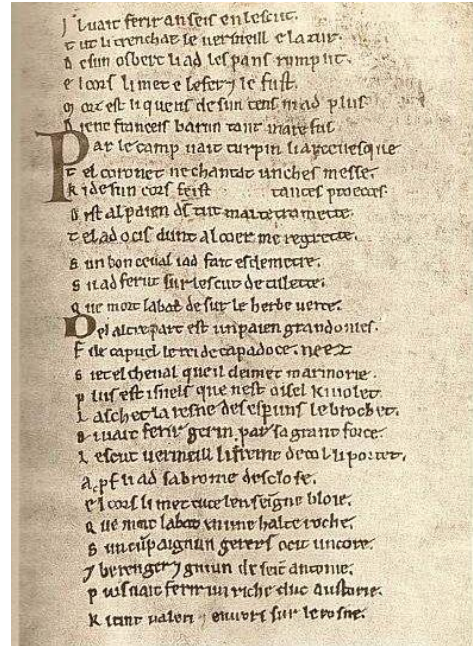 I luait ferir anseis en lescut.
t ut li trenchat le uermeill e lazur.
d e sun osberc li ad les pans rumput.
e l cors li met e le fer ⁊ le fust.
m orz est li quens de sun tens ni ad plus
d ient franceis barun tant mare fus
P ar le camp uait turpin li arceuesque
t el coronet ne chantat unches messe.
k i de sun cors feist tantes proecces.
d ist al paien ds tut mal te tramette.
t el ad ocis dunt al coer me regrette.
s un bon ceual i ad fait esdemetre.
s i lad ferut sur lescut de tulette.
q ue mort labat desur le herbe uerte.
D el altre part est un paien grandonies.
f ilz capuel le rei de capadoce. neez
s iet el cheual que il cleimet marmorie.
p lus est isnels que nest oisel ki uolet.
l aschet la resne des espuns le brochet.
s i uait ferir gerin par sa grant force.
l escut uermeill li freint de col li portet.
a pf li ad sa bronie desclose.
e l cors li met tute lenseigne bloie.
q ue mort labat en une halte roche.
s un cupaignun gerers ocit uncore.
⁊ berenger ⁊ guiun de seit antonie.
p uis uait ferir un riche duc austorie.
k i tint ualeri ⁊ enuers sur le rosne.